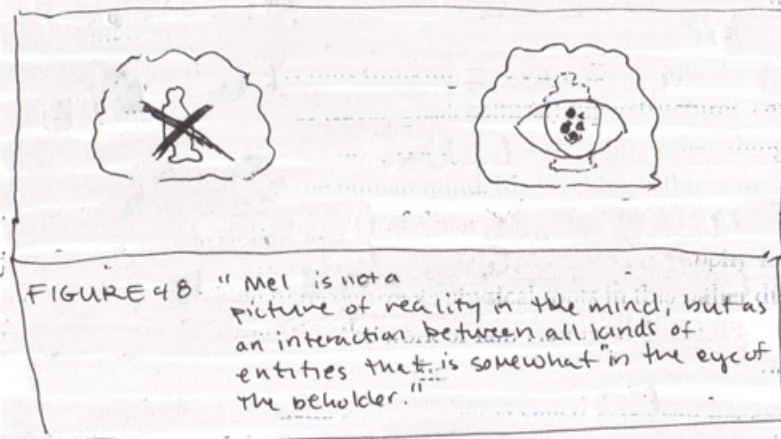 FIGURE 48 " Mel is not a
picture of reality in the mind, but as
an interaction between all kinds of
entities that is somewhat "in the eye of
the beholder."